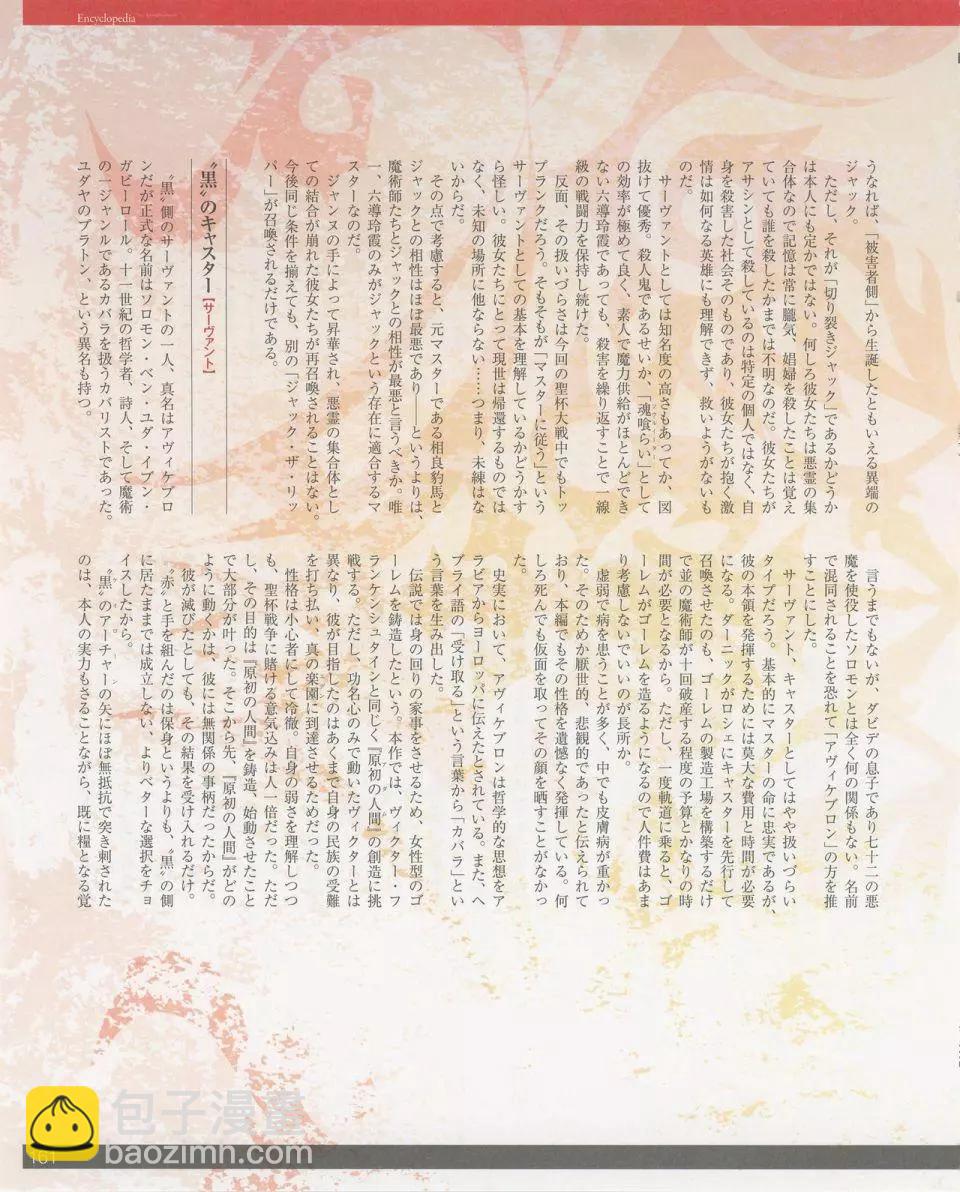 Encyclopedia
うなれば、「被害者側」から生誕したともいえる異端の
ジャック。
　ただし、それが「切り裂きジャック」であるかどうか
は本人にも定かではない。何しろ彼女たちは悪霊の集
合体なので記憶は常に朧気、娼婦を殺したことは覚え
ていても誰を殺したかまでは不明なのだ。彼女たちが
アサシンとして殺しているのは特定の個人ではなく、自
身を殺害した社会そのものであり、彼女たちが抱く激
情は如何なる英雄にも理解できず、救いようがないも
のだ。
　サーヴァントとしては知名度の高さもあってか、図
抜けて優秀。殺人鬼であるせいか、「魂喰らい」として
の効率が極めて良く、素人で魔力供給がほとんどでき
ない六導玲霞であっても、殺害を繰り返すことで一線
級の戦闘力を保持し続けた。
　反面、その扱いづらさは今回の聖杯大戦中でもトッ
プランクだろう。そもそもが「マスターに従う」という
サーヴァントとしての基本を理解しているかどうかす
ら怪しい。彼女たちにとって現世は帰還するものでは
なく、未知の場所に他ならない……つまり、未練はな
いからだ。
　その点で考慮すると、元マスターである相良豹馬と
ジャックとの相性はほぼ最悪であり――というよりは、
魔術師たちとジャックとの相性が最悪と言うべきか。唯
一、六導玲霞のみがジャックという存在に適合するマ
スターなのだ。
　ジャンヌの手によって昇華され、悪霊の集合体とし
ての結合が崩れた彼女たちが再召喚されることはない。
今後同じ条件を揃えても、別の「ジャック・ザ・リッ
パー」が召喚されるだけである。
〝黒〟のキャスター【サーヴァント】
　〝黒〟側のサーヴァントの一人、真名はアヴィケブロ
ンだが正式な名前はソロモン・ベン・ユダ・イブン・
ガビーロール。十一世紀の哲学者、詩人、そして魔術
の一ジャンルであるカバラを扱うカバリストであった。
ユダヤのプラトン、という異名も持つ。
　言うまでもないが、ダビデの息子であり七十二の悪
魔を使役したソロモンとは全く何の関係もない。名前
で混同されることを恐れて「アヴィケブロン」の方を推
すことにした。
　サーヴァント、キャスターとしてはやや扱いづらい
タイプだろう。基本的にマスターの命に忠実であるが、
彼の本領を発揮するためには莫大な費用と時間が必要
になる。ダーニックがロシェにキャスターを先行して
召喚させたのも、ゴーレムの製造工場を構築するだけ
で並の魔術師が十回破産する程度の予算とかなりの時
間が必要となるから。ただし、一度軌道に乗ると、ゴ
ーレムがゴーレムを造るようになるので人件費はあま
り考慮しないでいいのが長所か。
　虚弱で病を患うことが多く、中でも皮膚病が重かっ
た。そのためか厭世的、悲観的であったと伝えられて
おり、本編でもその性格を遺憾なく発揮している。何
しろ死んでも仮面を取ってその顔を晒すことがなかっ
た。
　史実において、アヴィケブロンは哲学的な思想をア
ラビアからヨーロッパに伝えたとされている。また、ヘ
ブライ語の「受け取る」という言葉から「カバラ」とい
う言葉を生み出した。
　伝説では身の回りの家事をさせるため、女性型のゴ
ーレムを鋳造したという。本作では、ヴィクター・フ
ランケンシュタインと同じく『原初の人間』の創造に挑
戦する。ただし、功名心のみで動いたヴィクターとは
異なり、彼が目指したのはあくまで自身の民族の受難
を打ち払い、真の楽園に到達させるためだった。
　性格は小心者にして冷徹。自身の弱さを理解しつつ
も、聖杯戦争に賭ける意気込みは人一倍だった。ただ
し、その目的は『原初の人間』を鋳造、始動させたこと
で大部分が叶った。そこから先、『原初の人間』がどの
ように動くかは、彼には無関係の事柄だったからだ。
　彼が滅びたとしても、その結果を受け入れるだけ。
　〝赤〟と手を組んだのは保身というよりも、〝黒〟の側
に居たままでは成立しない、よりベターな選択をチョ
イスしたから。
　〝黒〟のアーチャーの矢にほぼ無抵抗で突き刺された
のは、本人の実力もさることながら、既に糧となる覚
161
包子漫畫
baozimh.com